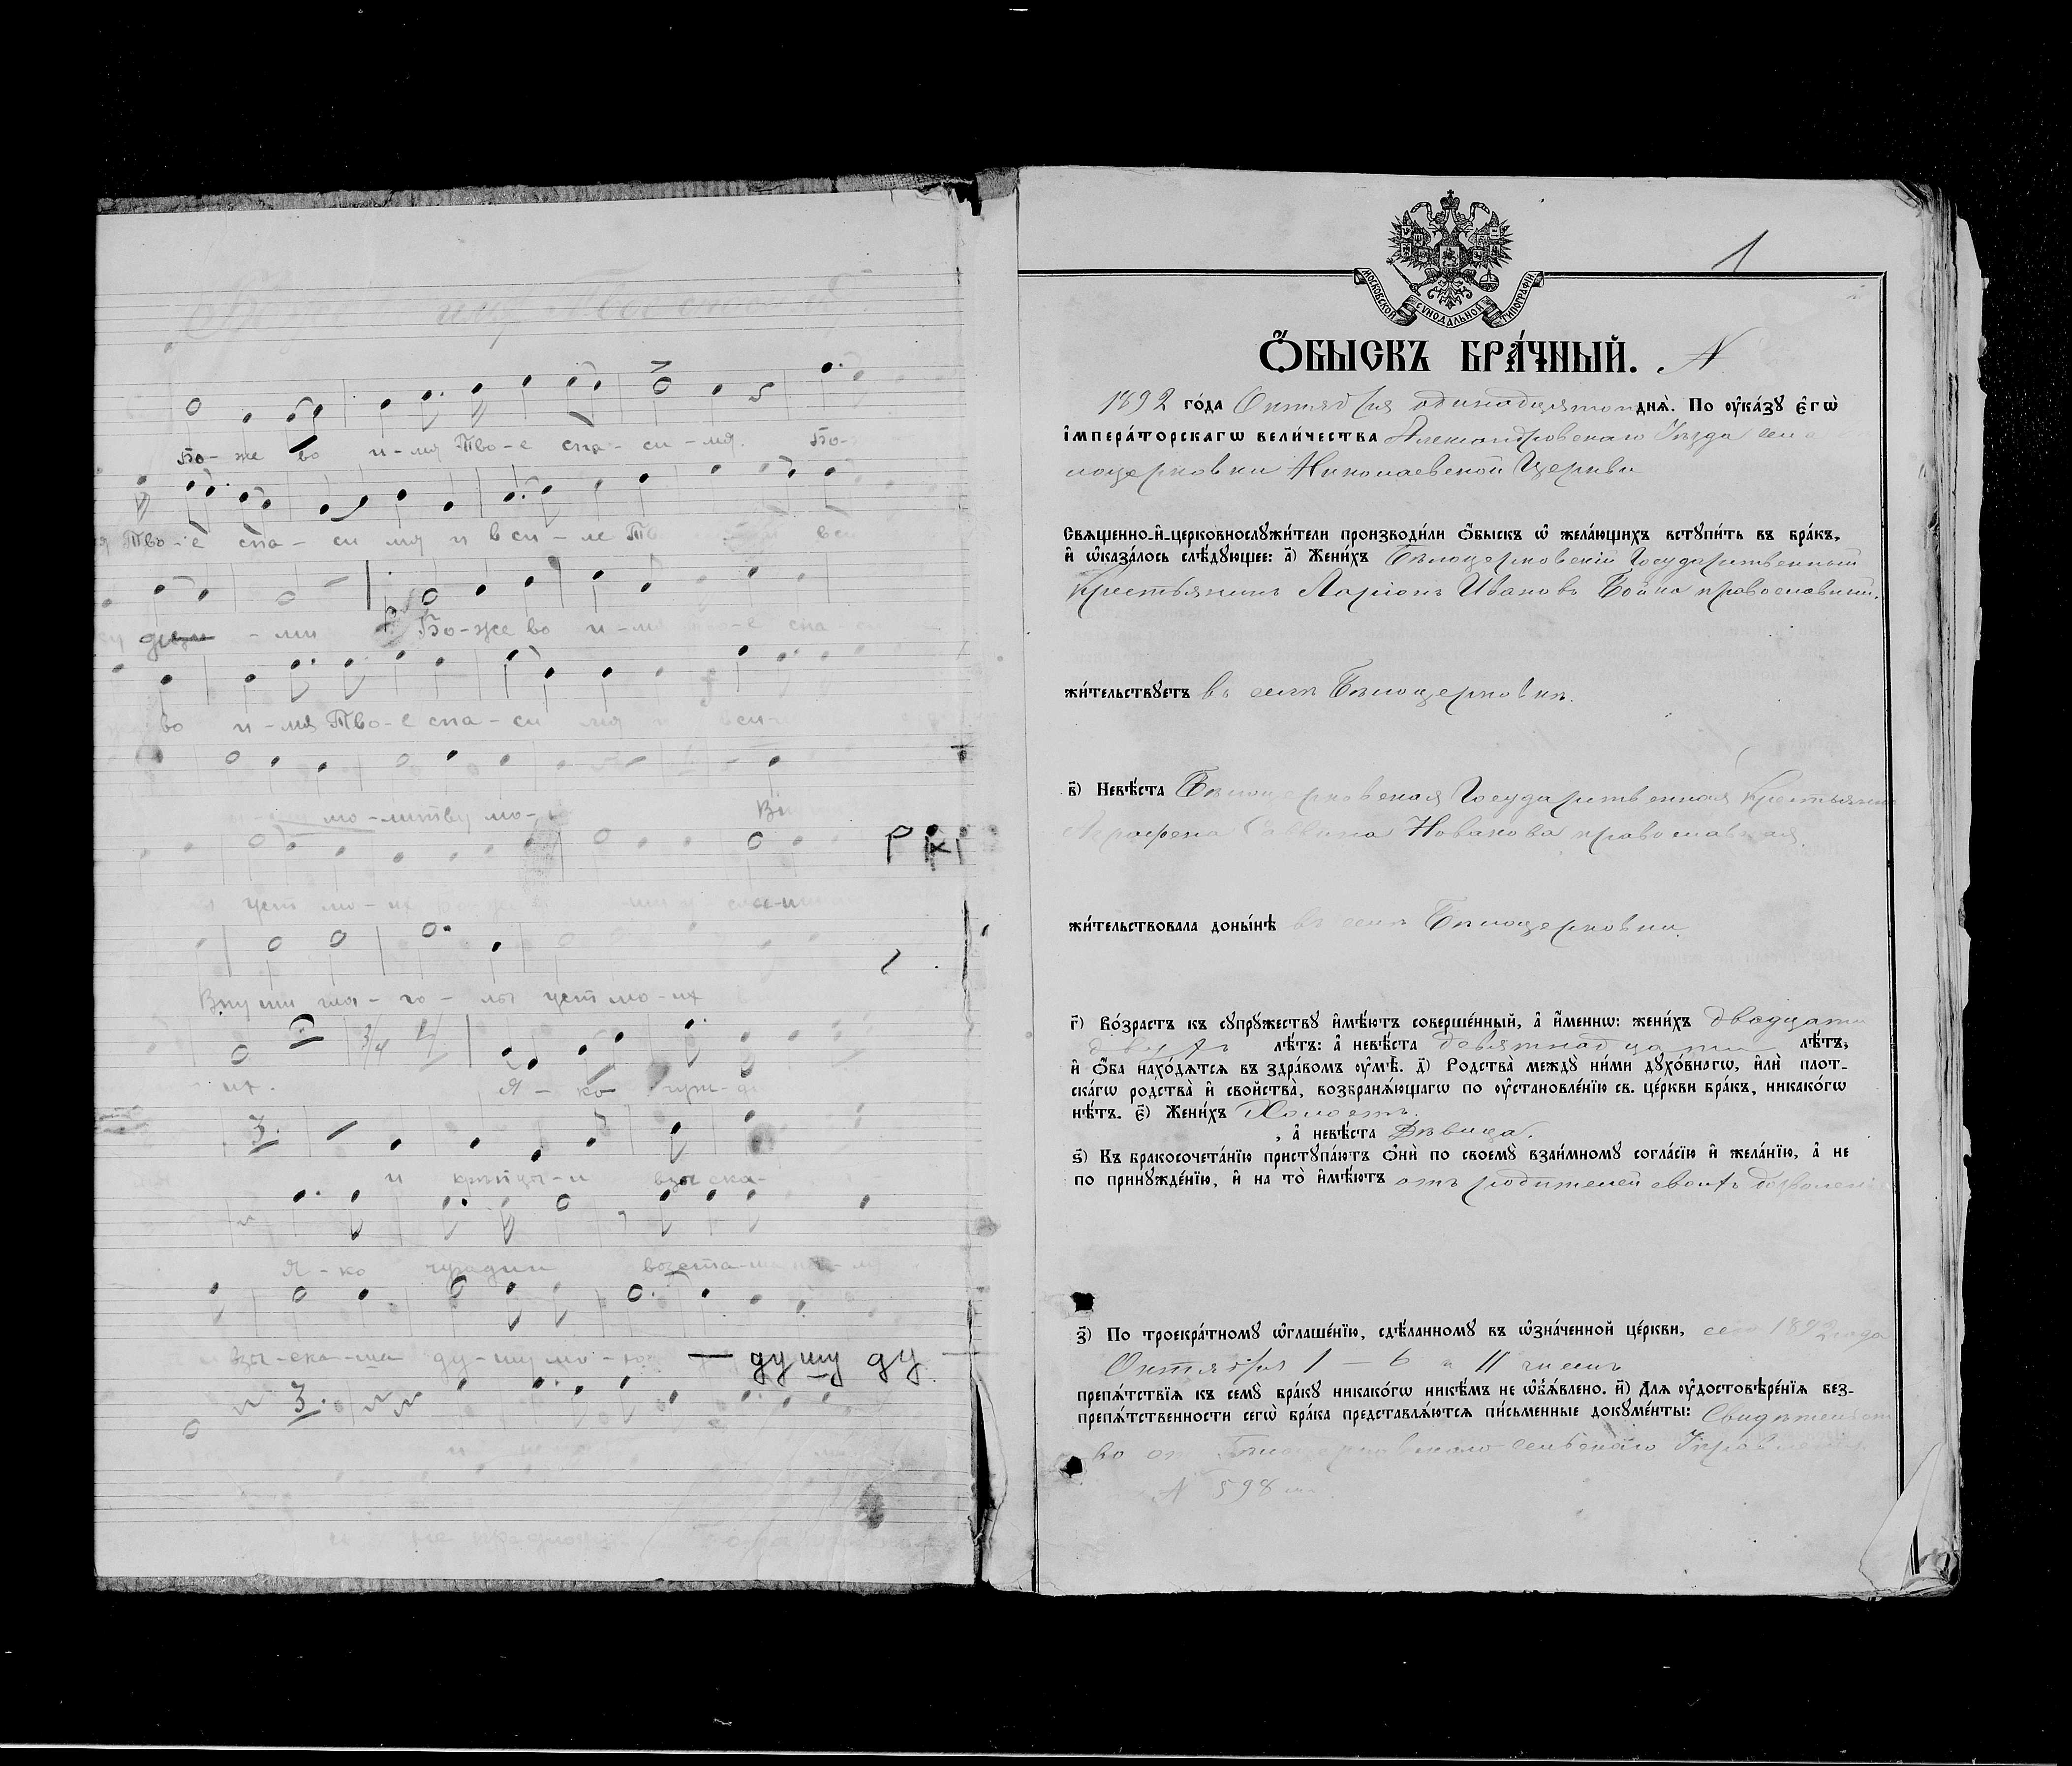 Бо-же во и-мя Тво-е спа-си-мя. Бо-
Тво-е спа-си мя и в си-ле Тв
-ми Бо-же во и-мя спа-
во и-мя Тво-е спа-си мя в си-
мо-литву мо-
уст мо-их
Внуши гла-го-лы уст мо-их
их. Я-ко чуж-ди
и крепцы-и взыска-
Я-ко чуждии восста-ша на мя
взы-ска-ша ду-шу мо-ю — душу ду
и не предложи Бога
1
МОСКОВСКОЙ СѴНОДАЛЬНОЙ ТИПОГРАФІИ
Ѻ҆БЫСКЪ БРА́ЧНЫЙ. N
1892 го́да Октября одинадцатого днѧ̀. По ᲂу҆ка́зꙋ є҆гѡ̀
і҆мпера́торскагѡ вели́чества Александровскаго Уѣзда села
лоцерковки Николаевской Церкви
Свѧще́нно-и҆-церковнослꙋжи́тели производи́ли ѻ҆́быскъ ѡ҆ жела́ющихъ встꙋпи́ть въ бра́къ,
и҆ ѡ҆каза́лось слѣ́дꙋющее: а҃) Жени́хъ Бѣлоцерковскій Государственный
Крестьянинъ Ларіонъ Ивановъ Бойко православный.
жи́тельствꙋетъ въ селѣ Бѣлоцерковкѣ.
в҃) Невѣ́ста Бѣлоцерковская Государственная Крестьянка
Агрофена Саввина Новакова православная.
жи́тельствовала доны́нѣ въ селѣ Бѣлоцерковки.
г҃) Во́зрастъ къ сꙋпрꙋ́жествꙋ и҆мѣ́ютъ соверше́нный, а҆ и҆́меннѡ: жени́хъ двадцати
двухъ лѣ́тъ: а҆ невѣ́ста девятнадцати лѣ́тъ,
и҆ ѻ҆́ба нахо́дѧтсѧ въ здра́вомъ ᲂу҆мѣ̀. д҃) Родства̀ междꙋ̀ ни́ми дꙋхо́внагѡ, и҆лѝ плот-
ска́гѡ родства̀ и҆ сво́йства̀, возбранѧ́ющагѡ по ᲂу҆становле́нїю св. це́ркви бра́къ, никако́гѡ
нѣ́тъ. є҃) Жени́хъ Холостъ.
, а҆ невѣ́ста Дѣвица.
ѕ҃) Къ бракосочета́нїю пристꙋпа́ютъ ѻ҆нѝ по своемꙋ̀ взаи́мномꙋ согла́сїю и҆ жела́нїю, а҆ не
по принꙋжде́нїю, и҆ на то̀ и҆мѣ́ютъ отъ родителей своихъ дозволеніе
з҃) По троекра́тномꙋ ѡ҆глаше́нїю, сдѣ́ланномꙋ въ ѡ҆зна́ченной це́ркви, сего 1892 года
Октября 1 — 6 и 11 числъ
препѧ́тствїѧ къ семꙋ̀ бра́кꙋ никако́гѡ никѣ́мъ не ѡ҆б̾ѧ́влено. и҃) Для ᲂу҆достовѣре́нїѧ без-
препѧ́тственности сегѡ̀ бра́ка представлѧ́ютсѧ пи́сьменные докꙋме́нты: Свидѣтельст
во от Бѣлоцерковскаго сельскаго Управленія
N 598